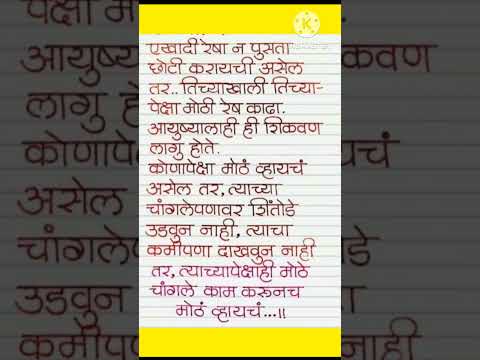 एखादी रेषा न पुसता
छोटी करायची असेल
तर.. तिच्याखाली तिच्या-
पेक्षा मोठी रेष काढा.
आयुष्यालाही ही शिकवण
लागु होते.
कोणापेक्षा मोठं व्हायचं
असेल तर, त्याच्या
चांगलेपणावर शिंतोडे
उडवुन नाही, त्याचा
कमीपणा दाखवुन नाही
तर, त्याच्यापेक्षाही मोठे
चांगले काम करूनच
मोठं व्हायचं...।।